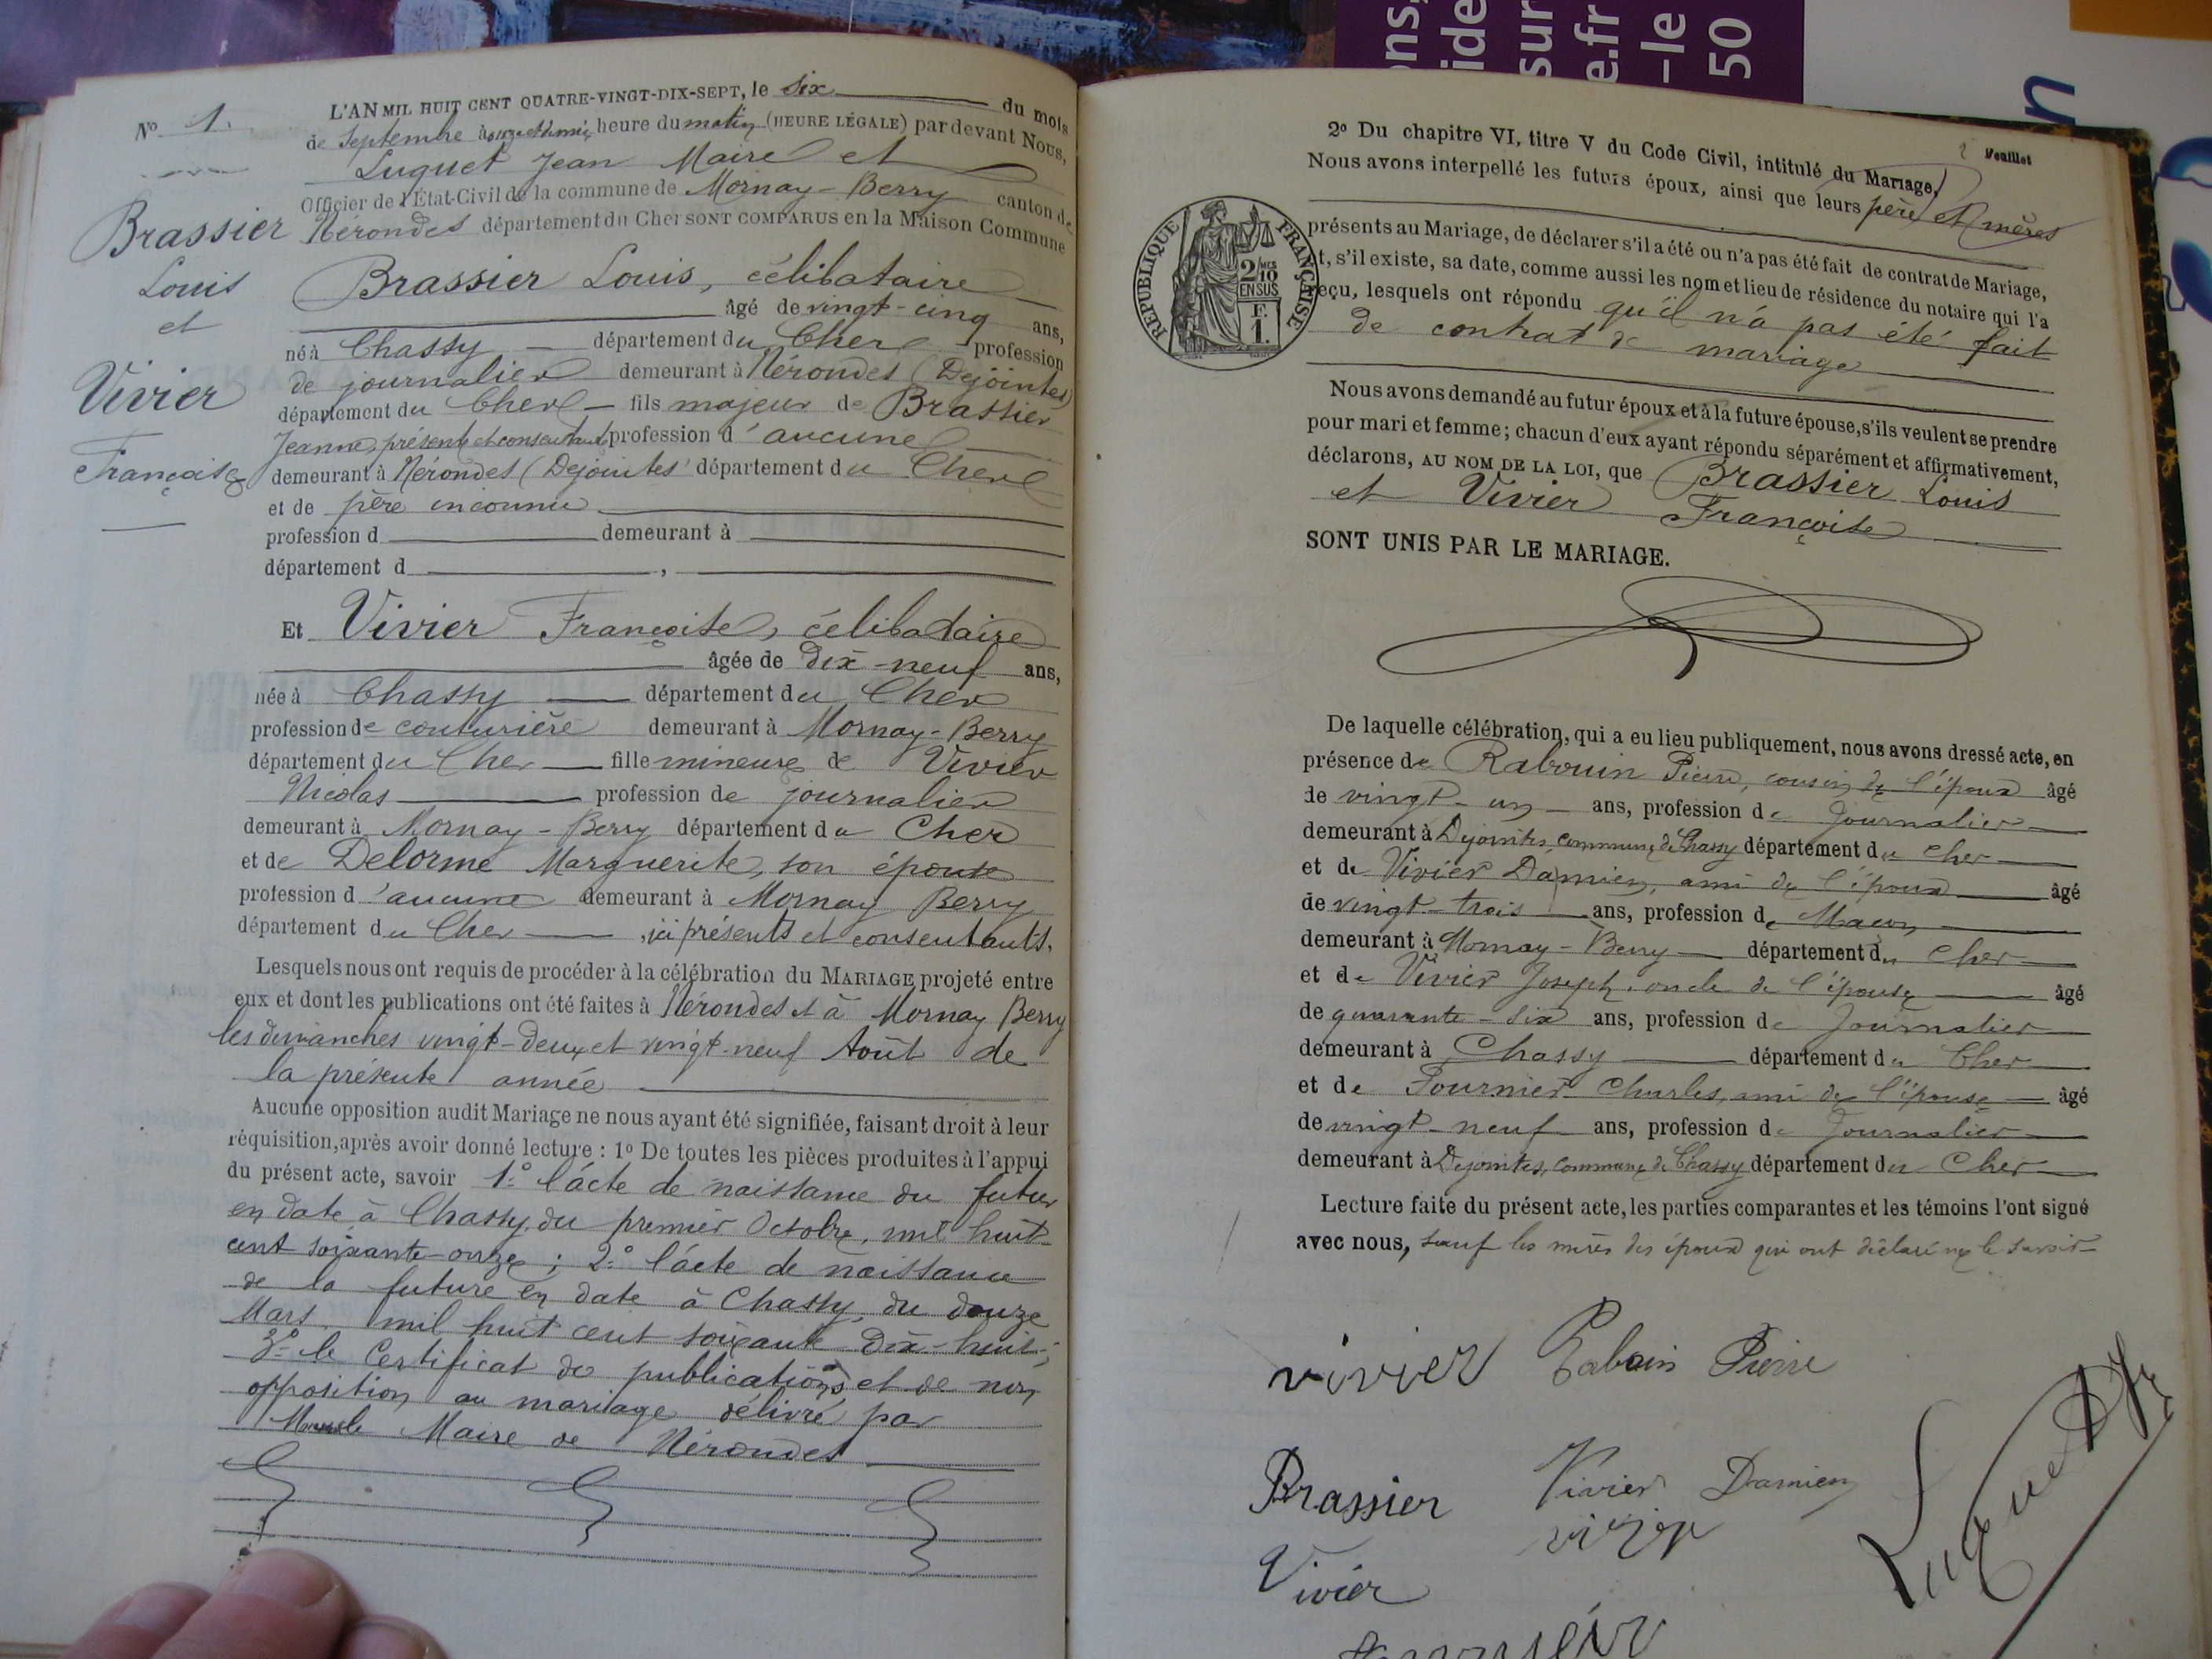 ons,
ide
sur
e.fr
-le
50
n
No 1.
Brassier
Louis
et
Vivier
Françoise
L'AN MIL HUIT CENT QUATRE-VINGT-DIX-SEPT, le six du mois
de Septembre à onze et demie heure du matin (HEURE LÉGALE) par devant Nous,
Luguet Jean Maire et
Officier de l'État-Civil de la commune de Mornay-Berry canton de
Nérondes département du Cher SONT COMPARUS en la Maison Commune
Brassier Louis, célibataire
âgé de vingt-cinq ans,
né à Chassy département du Cher profession
de journalier demeurant à Nérondes (Dejointes)
département du Cher fils majeur de Brassier
Jeanne, présente et consentante profession d'aucune
demeurant à Nérondes (Dejointes) département du Cher
et de père inconnu
profession d demeurant à
département d ,
Et Vivier Françoise, célibataire
âgée de dix-neuf ans,
née à Chassy département du Cher
profession de couturière demeurant à Mornay-Berry
département du Cher fille mineure de Vivier
Nicolas profession de journalier
demeurant à Mornay-Berry département du Cher
et de Delorme Marguerite, son épouse
profession d'aucune demeurant à Mornay Berry
département du Cher , ici présents et consentants.
Lesquels nous ont requis de procéder à la célébration du MARIAGE projeté entre
eux et dont les publications ont été faites à Nérondes et à Mornay Berry
les dimanches vingt-deux et vingt-neuf Août de
la présente année
Aucune opposition audit Mariage ne nous ayant été signifiée, faisant droit à leur
réquisition, après avoir donné lecture : 1o De toutes les pièces produites à l'appui
du présent acte, savoir 1o l'acte de naissance du futur
en date à Chassy, du premier Octobre, mil huit
cent soixante-onze ; 2o l'acte de naissance
de la future en date à Chassy, du douze
Mars mil huit cent soixante Dix-huit ;
3o le Certificat de publications et de non
opposition au mariage délivré par
le Maire de Nérondes
2 Feuillet
2o Du chapitre VI, titre V du Code Civil, intitulé du Mariage,
Nous avons interpellé les futurs époux, ainsi que leurs père et mères
présents au Mariage, de déclarer s'il a été ou n'a pas été fait de contrat de Mariage,
t, s'il existe, sa date, comme aussi les nom et lieu de résidence du notaire qui l'a
eçu, lesquels ont répondu qu'il n'a pas été fait
de contrat de mariage
RÉPUBLIQUE FRANÇAISE
2/10 MES
EN SUS
F.
1.
Nous avons demandé au futur époux et à la future épouse, s'ils veulent se prendre
pour mari et femme ; chacun d'eux ayant répondu séparément et affirmativement,
déclarons, AU NOM DE LA LOI, que Brassier Louis
et Vivier Françoise
SONT UNIS PAR LE MARIAGE.
De laquelle célébration, qui a eu lieu publiquement, nous avons dressé acte, en
présence de Rabouin Pierre, cousin de l'époux âgé
de vingt-un ans, profession de Journalier
demeurant à Dejointes, commune de Chassy département du Cher
et de Vivier Damien, ami de l'époux âgé
de vingt-trois ans, profession de Maçon
demeurant à Mornay-Berry département du Cher
et de Vivier Joseph, oncle de l'épouse âgé
de quarante-six ans, profession de Journalier
demeurant à Chassy département du Cher
et de Fournier Charles, ami de l'épouse âgé
de vingt-neuf ans, profession de Journalier
demeurant à Dejointes, commune de Chassy département du Cher
Lecture faite du présent acte, les parties comparantes et les témoins l'ont signé
avec nous, sauf les mères des époux qui ont déclaré ne le savoir
vivier Rabouin Pierre
Brassier Vivier Damien
Vivier
Luguet